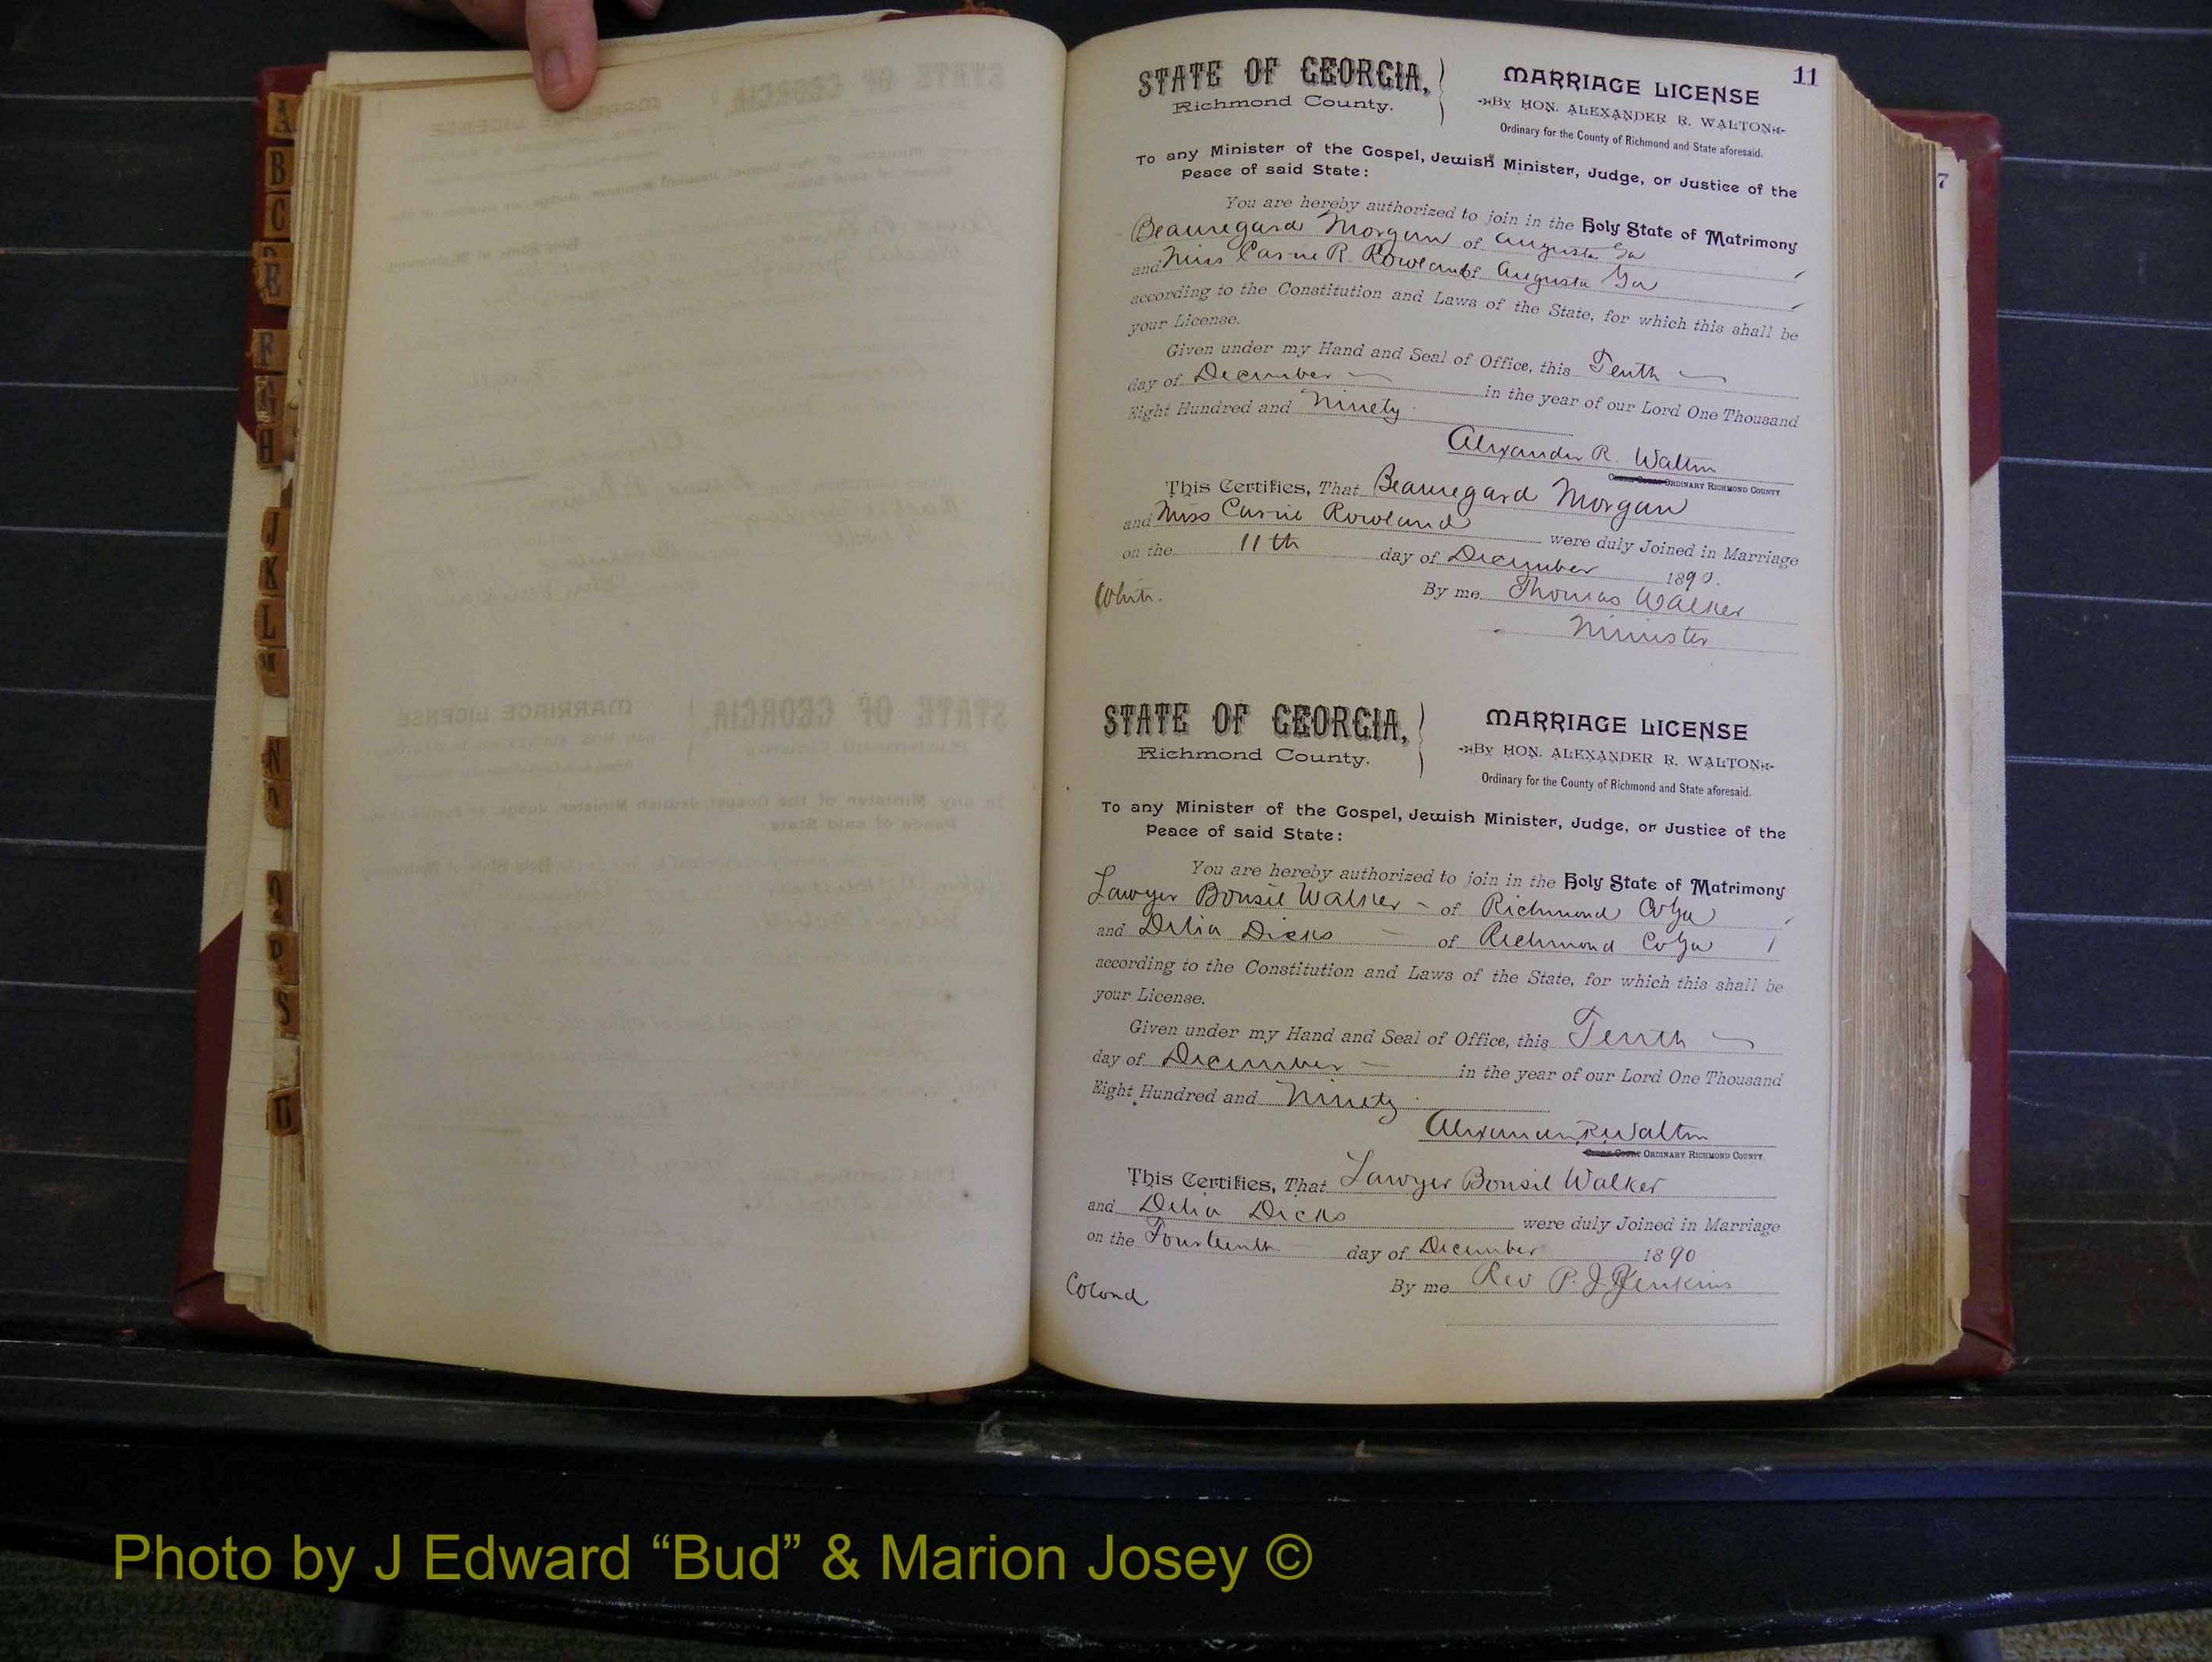 A
B
C
E
F
G
H
J
K
L
M
N
O
P
S
U
11
7
STATE OF GEORGIA,
Richmond County.
MARRIAGE LICENSE
By HON. ALEXANDER R. WALTON
Ordinary for the County of Richmond and State aforesaid.
To any Minister of the Gospel, Jewish Minister, Judge, or Justice of the
Peace of said State:
You are hereby authorized to join in the Holy State of Matrimony
Beauregard Morgan of Augusta Ga
and Miss Carrie R. Rowland of Augusta Ga
according to the Constitution and Laws of the State, for which this shall be
your License.
Given under my Hand and Seal of Office, this Tenth
day of December in the year of our Lord One Thousand
Eight Hundred and Ninety
Alexander R. Walton
ORDINARY RICHMOND COUNTY
This Certifies, That Beauregard Morgan
and Miss Carrie Rowland were duly Joined in Marriage
on the 11th day of December 1890.
White. By me Thomas Walker
Minister
STATE OF GEORGIA,
Richmond County.
MARRIAGE LICENSE
By HON. ALEXANDER R. WALTON
Ordinary for the County of Richmond and State aforesaid.
To any Minister of the Gospel, Jewish Minister, Judge, or Justice of the
Peace of said State:
You are hereby authorized to join in the Holy State of Matrimony
Lawyer Bonsil Walker of Richmond Co Ga
and Delia Dicks of Richmond Co Ga
according to the Constitution and Laws of the State, for which this shall be
your License.
Given under my Hand and Seal of Office, this Tenth
day of December in the year of our Lord One Thousand
Eight Hundred and Ninety
Alexander R Walton
ORDINARY RICHMOND COUNTY
This Certifies, That Lawyer Bonsil Walker
and Delia Dicks were duly Joined in Marriage
on the Fourteenth day of December 1890
Colored By me Rev P. J. Jenkins
Photo by J Edward “Bud” & Marion Josey ©